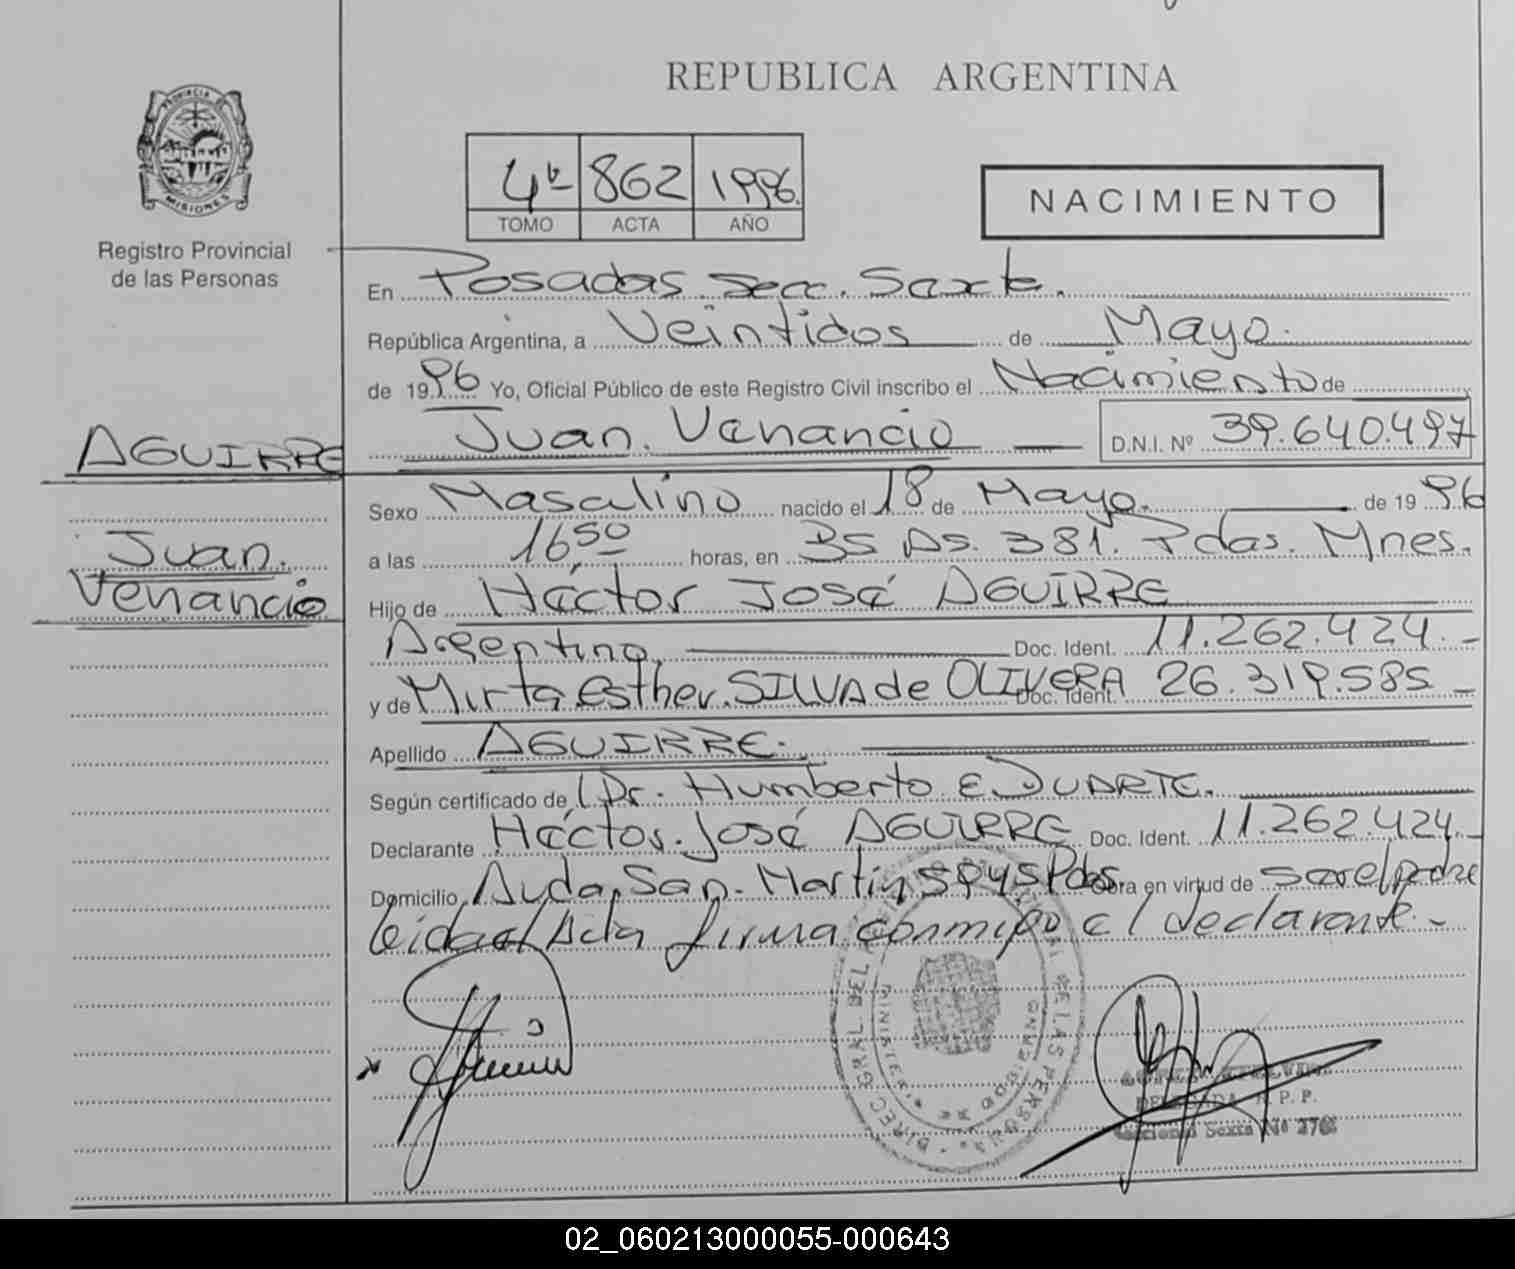 REPUBLICA ARGENTINA
PROVINCIA DE
MISIONES
Registro Provincial
de las Personas
4º 862 1996.
TOMO ACTA AÑO
NACIMIENTO
En Posadas Secc. Sexta.
República Argentina, a Veintidos de Mayo.
de 1996 Yo, Oficial Público de este Registro Civil inscribo el Nacimiento de
AGUIRRE
Juan. Venancio D.N.I. Nº 39.640.497
Sexo Masculino nacido el 18 de Mayo. de 1996
Juan.
Venancio
a las 16 50 horas, en Bs As. 381. Pdas. Mnes.
Hijo de Héctor José AGUIRRE
Argentino, Doc. Ident. 11.262.424.-
y de Mirta Esther. SILVA de OLIVERA Doc. Ident. 26.319.585 -
Apellido AGUIRRE.
Según certificado de Dr. Humberto E DUARTE.
Declarante Héctor. José AGUIRRE Doc. Ident. 11.262.424.-
Domicilio Avda, San. Martin 5945 Pdas. Obra en virtud de ser el padre
leida el Acta firma conmigo el declarante.-
DIREC. GRAL. DEL REGISTRO PROVINCIAL DE LAS PERSONAS
MINISTERIO DE GOBIERNO
DELEGADA R. P. P.
Seccional Sexta Nº 2708
02_060213000055-000643